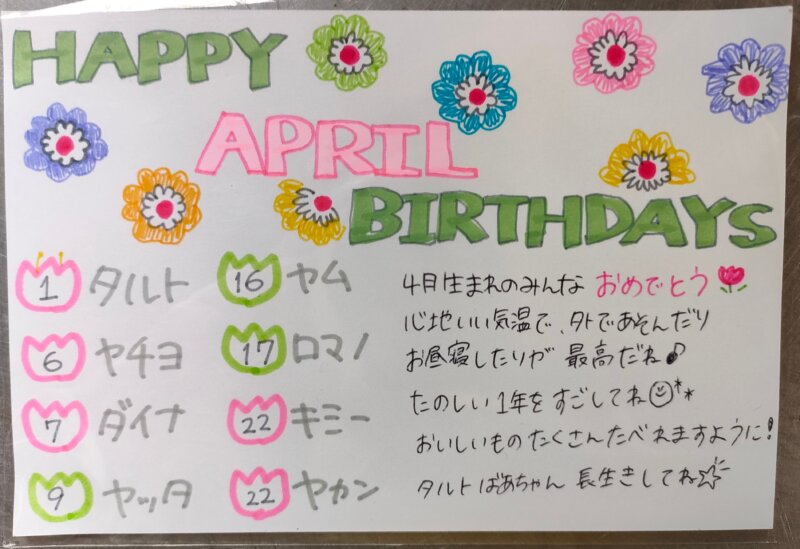 HAPPY
APRIL
BIRTHDAYS
1 タルト
6 ヤチヨ
7 ダイナ
9 ヤッタ
16 ヤム
17 ロマノ
22 キミー
22 ヤカン
4月生まれのみんな おめでとう
心地いい気温で、外であそんだり
お昼寝したりが 最高だね♪
たのしい1年をすごしてね
おいしいものたくさんたべれますように!
タルトばあちゃん 長生きしてね☆